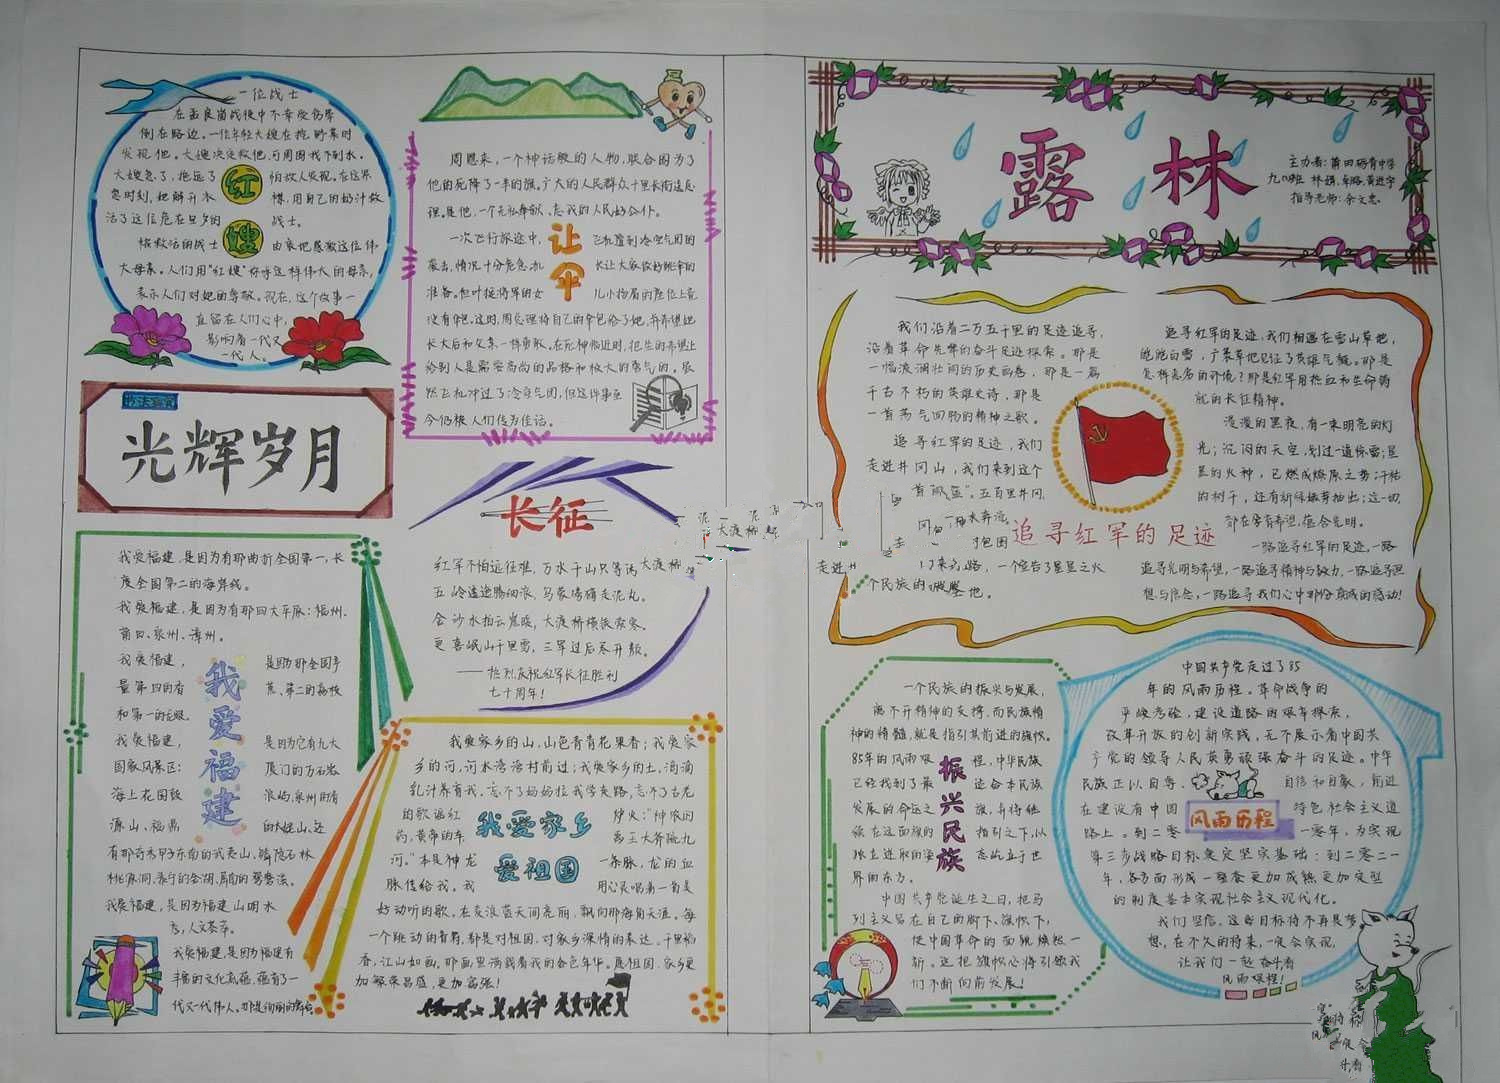 露林
主办者:莆田砺青中学
指导老师:余文忠.
一位战士
在孟良崮战役中不幸受伤晕
倒在路边。一位年轻大嫂在挖野菜时
发现他。大嫂决定救他,可周围找不到水。
大嫂急了,拖远了
怕敌人发现。在这紧
急时刻,她解开衣
襟,用自己的奶汁救
活了这位危在旦夕的
战士。
红嫂
被救活的战士
由衷地感激这位伟
大母亲。人们用“红嫂”称呼这样伟大的母亲,
表示人们对她的尊敬。现在,这个故事一
直留在人们心中,
影响着一代又
一代人。
周恩来,一个神话般的人物,联合国为了
他的死降了一半的旗。广大的人民群众十里长街送总
理。是他,一个无私奉献、忘我的人民好公仆。
让伞
一次飞行旅途中,
飞机遭到冷空气团的
袭击,情况十分危急,机
长让大家做好跳伞的
准备。但叶挺将军的女
儿小扬眉的座位上竟
没有伞包。这时,周总理将自己的伞包给了她,并希望她
长大后和父亲一样勇敢。在死神临近时,把生的希望让
给别人是需要高尚的品格和极大的勇气的。虽
然飞机冲过了冷空气团,但这件事至
今仍被人们传为佳话。
光辉岁月
长征
红军不怕远征难,万水千山只等闲
五岭逶迤腾细浪,乌蒙磅礴走泥丸。
金沙水拍云崖暖,大渡桥横铁索寒。
更喜岷山千里雪,三军过后尽开颜。
——热烈庆祝红军长征胜利
七十周年!
我爱福建,是因为有那曲折全国第一,长
度全国第二的海岸线。
我爱福建,是因为有那四大平原:福州、
莆田、泉州、漳州。
我爱福建
我爱福建,
是因为那全国产
量第四的香
蕉、第二的荔枝
和第一的龙眼。
我爱福建,
是因为它有九大
国家风景区:
厦门的万石岩
海上花园鼓
浪屿,泉州的清
源山、福鼎
的太姥山,还
有那奇秀甲于东南的武夷山、鳞隐石林
我爱福建,是因为福建山明水
秀,人文荟萃。
我爱福建,是因为福建有
丰富的文化底蕴,蕴育了一
我爱家乡的山,山色青青花果香;我爱家
乡的河,河水湾湾村前过;我爱家乡的土,滴滴
乳汁养育我。忘不了妈妈拉我学走路,忘不了古龙
我爱家乡
爱祖国
的歌谣红
炉火:“神农因
药,黄帝的车
禹王大奔险九
河。”本是神龙
一条脉,龙的血
脉传给我。我
用心灵唱着一首美
好动听的歌。在麦浪蓝天间亮丽,飘向那海角天涯。每
一个跳动的音符,都是对祖国、对家乡深情的表达。千里稻
香,江山如画,那画里满载着我的金色年华。愿祖国、家乡更
加繁荣昌盛,更加富强!
我们沿着二万五千里的足迹追寻,
沿着革命先辈的奋斗足迹探索。那是
一幅浪澜壮阔的历史画卷,那是一篇
千古不朽的英雄史诗,那是
一首荡气回肠的精神之歌。
追寻红军的足迹,我们
走进井冈山,我们来到这个
一个宣告了星星之火
个民族的
基地。
追寻红军的足迹
追寻红军的足迹,我们相遇在雪山草地,
皑皑白雪,广袤草地见证了英雄气概。那是
怎样恶劣的环境?那是红军用热血和生命铸
就的长征精神。
漫漫的黑夜,有一束明亮的灯
光;沉闷的天空,划过一道惊雷;星
星的火种,已燃成燎原之势;干枯
的树干,还有新绿嫩芽抽出;这一切,
都在孕育希望,蕴含光明。
一路追寻红军的足迹,一路
追寻光明与希望,一路追寻精神与毅力,一路追寻思
想与信念,一路追寻我们心中那份真诚的感动!
一个民族的振兴与发展,
离不开精神的支撑,而民族精
神的精髓,就是指引其前进的旗帜。
振兴民族
85年的风雨艰
程,中华民族
已经找到了最
适合本民族
发展的命运之
旗,并将继
续在这面旗的
指引之下,以
独立进取的姿
态屹立于世
界的东方。
中国共产党诞生之日,把马
列主义写在自己的脚下、旗帜下,
使中国革命的面貌焕然一
新。这把旗帜必将引领我
们不断向前发展!
中国共产党走过了85
年的风雨历程。革命战争的
严峻考验,建设道路的艰辛探索,
改革开放的创新实践,无不展示着中国共
产党的领导人民英勇顽强奋斗的足迹。中华
风雨历程
民族正以自尊、
自信和自豪,前进
在建设有中国
特色社会主义道
路上。到二零
一零年,为实现
第三步战略目标奠定坚实基础;到二零二一
年,各方面形成一整套更加成熟更加定型
的制度基本实现社会主义现代化。
我们坚信,这些目标将不再是梦
想,在不久的将来,一定会实现。
让我们一起奋斗着
风雨历程!